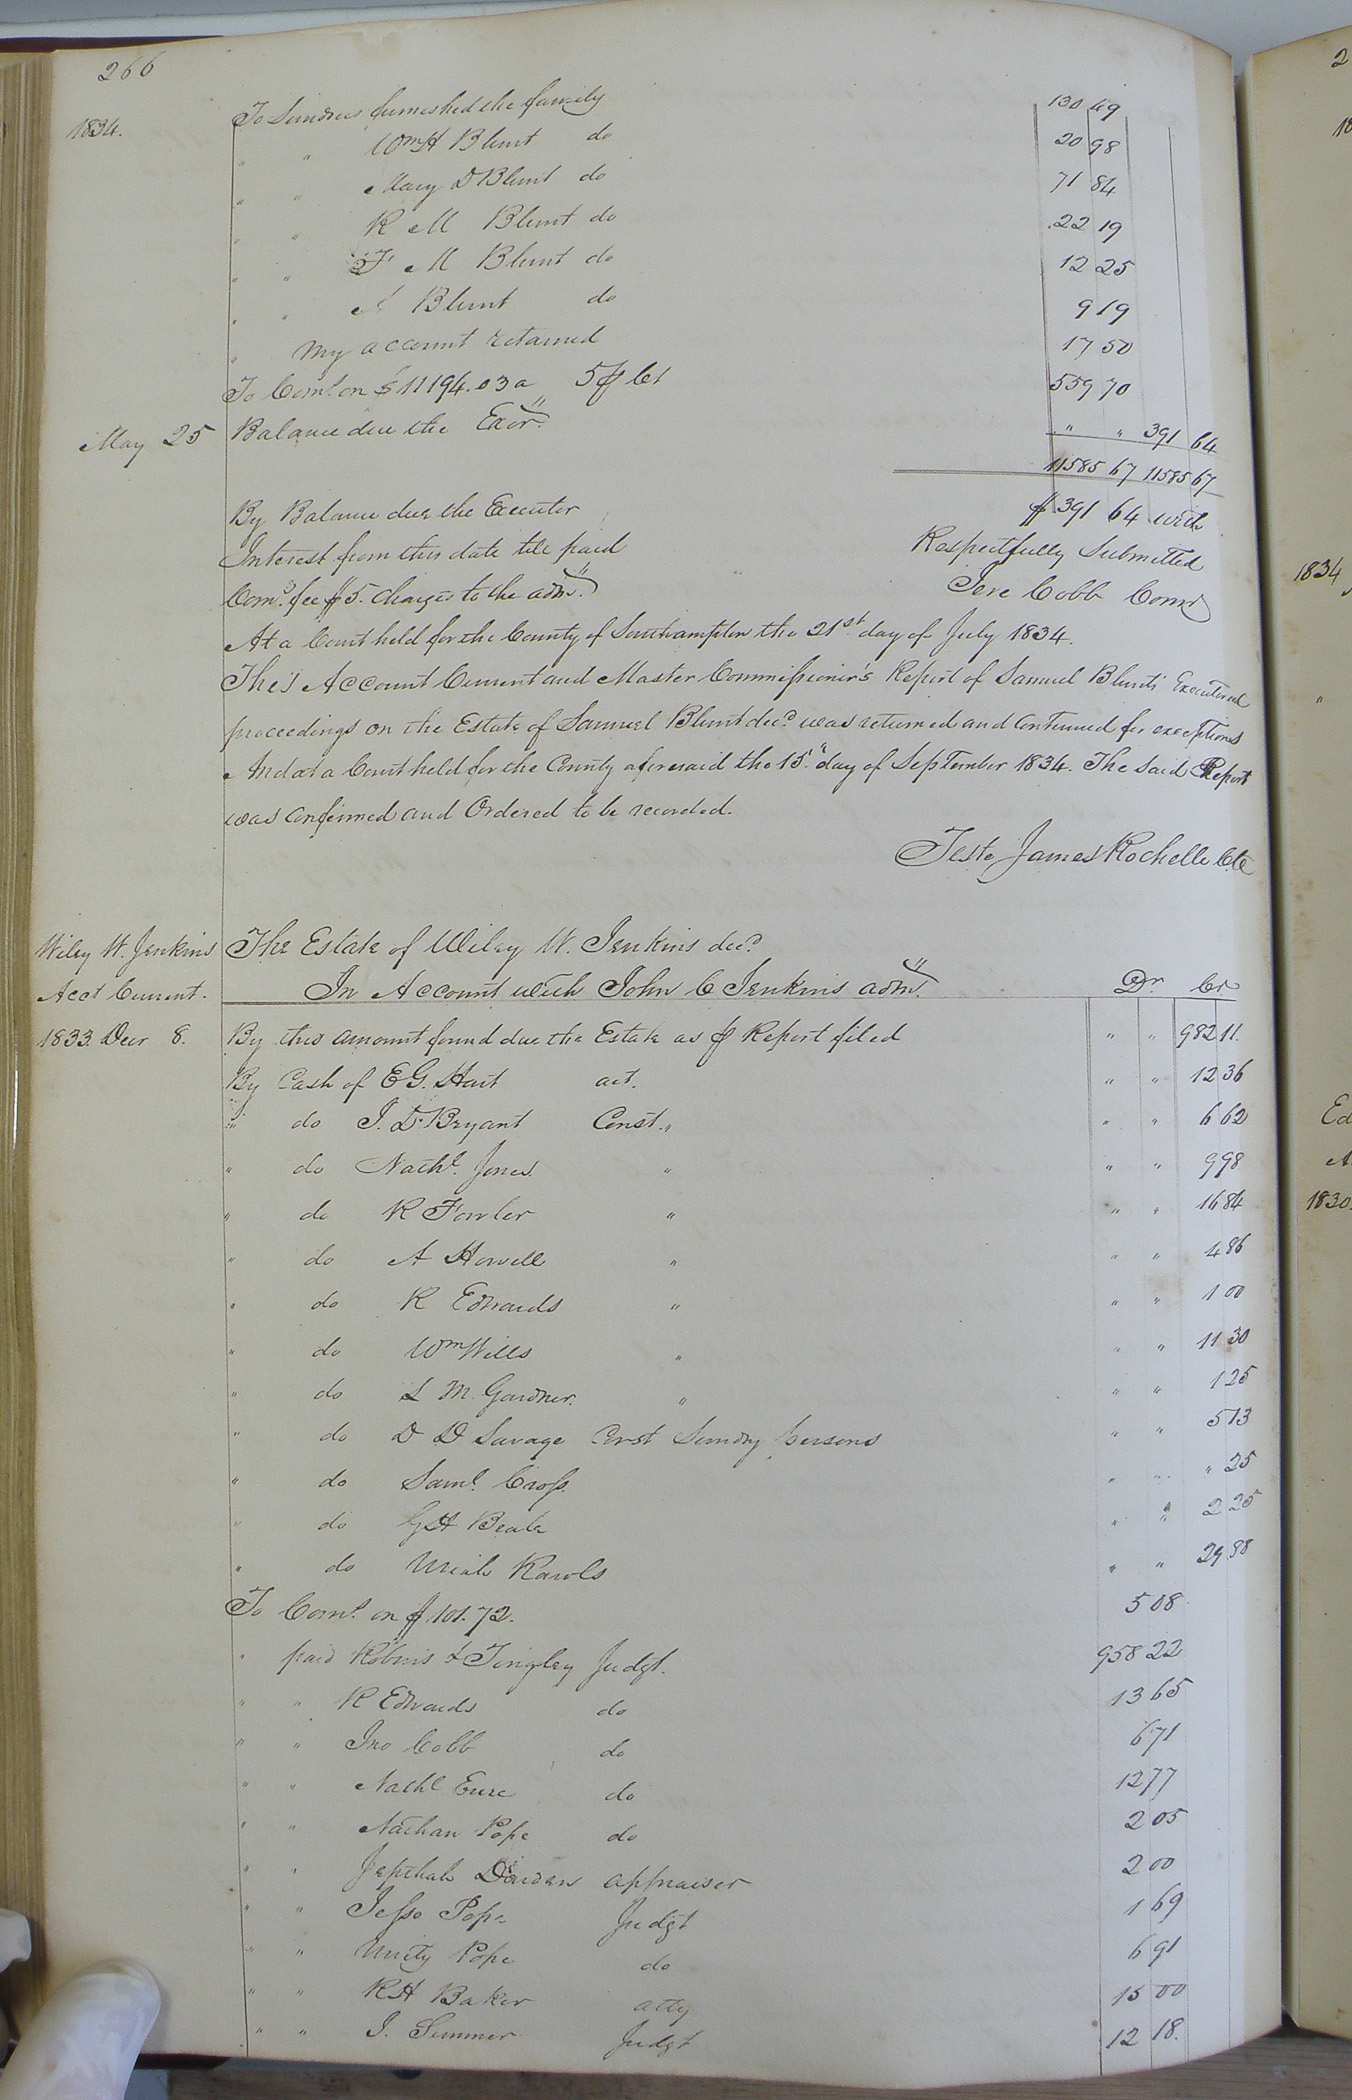 266
1834. To Sundries furnished the family 130 49
" " Wm H Blunt do 20 98
" " Mary D Blunt do 71 84
" " R M Blunt do 22 19
" " F M Blunt do 12 25
" " A Blunt do 9 19
" My account retained 17 50
To Coms. on $11194.03 a 5 p Ct 559 70
May 25 Balance due the Exor. " " 391 64
11585 67 11585 67
By Balance due the Executor $391 64 with
Interest from this date till paid Respectfully Submitted
Coms. fee $5. charged to the adm. Jere Cobb Comr
At a Court held for the County of Southampton the 21st day of July 1834.
This Account Current and Master Commissioner's Report of Samuel Blunts Executorial
proceedings on the Estate of Samuel Blunt decd. was returned and continued for exceptions
And at a Court held for the County aforesaid the 15" day of September 1834. The said Report
was confirmed and Ordered to be recorded.
Teste James Rochelle Clk
Wiley W. Jenkins The Estate of Wiley W. Jenkins decd.
Acct Current. In Account with John C Jenkins adm. Dr. Cr.
1833 Decr 8. By this amount found due the Estate as p Report filed " " 982 11.
By Cash of E G. Hart act. " " 12 36
" do J. D. Bryant Const. " " " 6 62
" do Nathl. Jones " " " 9 98
" do R Fowler " " " 16 84
" do A Howell " " " 4 86
" do R Edwards " " " 1 00
" do Wm Wills " " " 11 30
" do L M. Gardner. " " " 1 25
" do D D Savage Const Sundry persons " " 5 13
" do Saml. Cross. " " " 25
" do G H Beale " " 2 25
" do Uriah Rawls " " 29 88
To Coms. on $101.72. 5 08
" paid Robins & Tingley Judgt. 958 22
" " R Edwards do 13 65
" " Jno Cobb do 6 71
" " Nathl Eure do 12 77
" " Nathan Pope do 2 05
" " Jepthah Darden appraiser 2 00
" " Jesse Pope Judgt 1 69
" " Unity Pope do 6 91
" " R H Baker atty 15 00
" " J. Sumner Judgt 12 18.
2
18
1834
"
Ed
A
1830.